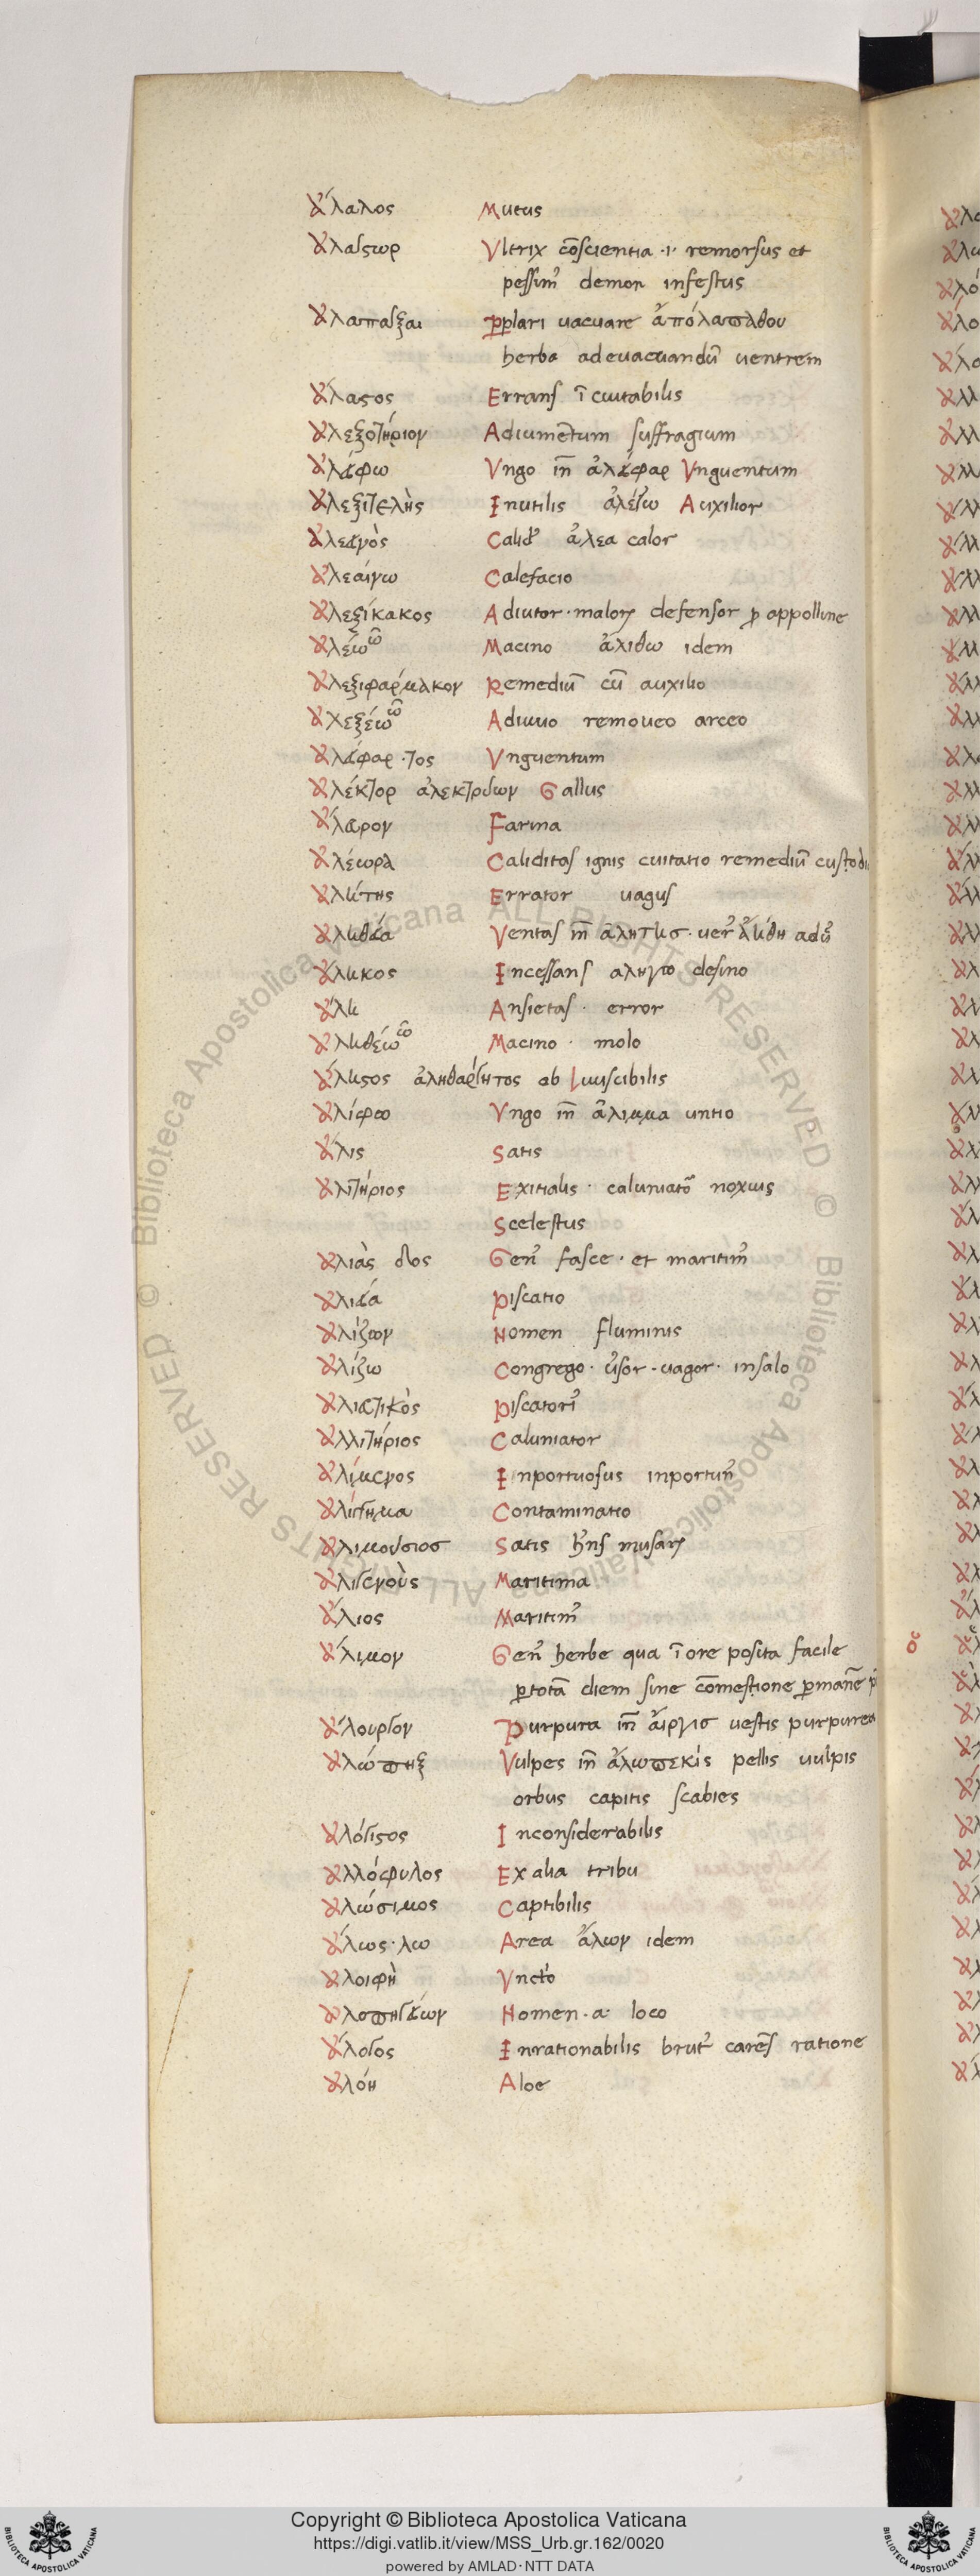 ἄλαλος Mutus
ἀλάστωρ Vltrix cōscientia ·i· remorsus et
pessim᾽ demon infestus
ἀλαπάξαι p̱plari uacuare ἀπόλαπάθου
herba adeuacuandū uentrem
ἄλαστος Errans ī euitabilis
ἀλεξοτήριον Adiumētum suffragium
ἀλείφω Vngo iñ ἀλείφαρ Vnguentum
ἀλεξιτελὴς Inutilis ἀλέγω Auxilior
ἀλεεινὸς Calid᾽ ἀλεα calor
ἀλεαίνω Calefacio
ἀλεξίκακος Adiutor · maloꝝ defensor ꝓ appolline
ἀλέω ῶ Macino ἀλιθω idem
ἀλεξιφαρμακον Remediū cū auxilio
ἀλεξέω ῶ Adiuuo remoueo arceo
ἀλείφαρ · τος Vnguentum
ἀλέκτορ ἀλεκτρυων Gallus
ἄλευρον Farina
ἀλέωρὰ Caliditas ignis euitatio remediū custodi
ἀλήτης Errator uagus
ἀληθεία Veritas iñ ἀλητησ · uer᾽ ἀλήθη adū᾽
ἄληκος Incessans αληγω desino
ἄλη Ansietas · error
ἀληθέω ῶ Macino · molo
ἄληστος ἀληθαργητος ob liuiscibilis
ἀλίφω Vngo iñ ἄλιμμα untio
ἄλις Satis
ἀλιτήριος Exitialis · caluniator᾽ noxius
Scelestus
ἀλιὰς δος Gen᾽ fasce · et maritim᾽
ἀλιεία Piscatio
ἀλίζων Nomen fluminis
ἀλίζω Congrego · ūsor · uagor · insalo
ἀλιευτικὸς Piscatori᾽
ἀλλιτήριος Caluniator
ἀλίμενος Inportuosus inportun᾽
ἀλίσγημα Contaminatio
ἀλιμούσιοσ Satis hn̄s musaꝝ
ἀλιγενοὺς Maritima
ἄλιος Maritim᾽
ἄλιμον Gen᾽ herbe qua ī ore posita facile
ꝑtotā diem sine cōmestione ꝑmanē
ἄλουργον Purpura iñ ἄιργισ uestis purpurea
ἀλώπηξ Vulpes iñ ἀλωπεκίς pellis uulpis
orbus capitis scabies
ἀλόγιστος Inconsiderabilis
ἀλλόφυλος Ex alia tribu
ἀλώσιμος Captibilis
ἄλως · λω Area ἄλων idem
ἀλοιφὴ Vncto
ἀλοπηγείων Nomen · a · loco
ἄλογος Inrationabilis brut᾽ carēs ratione
ἀλόη Aloe
Copyright © Biblioteca Apostolica Vaticana
https://digi.vatlib.it/view/MSS_Urb.gr.162/0020
powered by AMLAD · NTT DATA